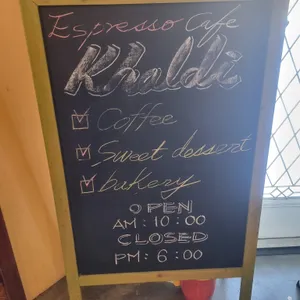 Espresso Cafe
Khaldi
☑ Coffee
☑ Sweet dessert
☑ bakery
OPEN
AM: 10:00
CLOSED
PM: 6:00